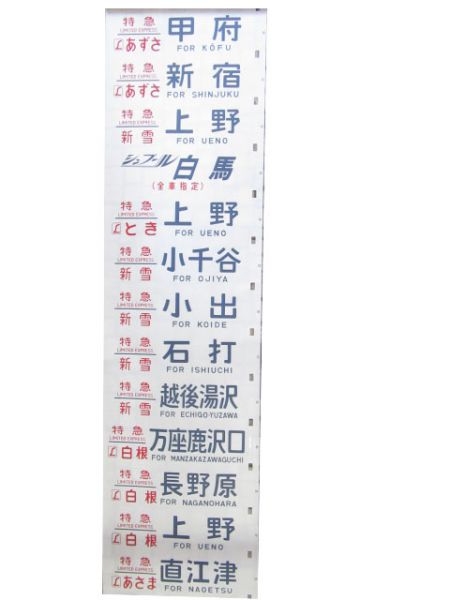 特急 甲府
LIMITED EXPRESS
L あずさ FOR KŌFU
特急 新宿
LIMITED EXPRESS
L あずさ FOR SHINJUKU
特急 上野
LIMITED EXPRESS
新雪 FOR UENO
シュプール 白馬
(全車指定)
特急 上野
LIMITED EXPRESS
L とき FOR UENO
特急 小千谷
LIMITED EXPRESS
新雪 FOR OJIYA
特急 小出
LIMITED EXPRESS
新雪 FOR KOIDE
特急 石打
LIMITED EXPRESS
新雪 FOR ISHIUCHI
特急 越後湯沢
LIMITED EXPRESS
新雪 FOR ECHIGO-YUZAWA
特急 万座鹿沢口
LIMITED EXPRESS
L 白根 FOR MANZAKAZAWAGUCHI
特急 長野原
LIMITED EXPRESS
L 白根 FOR NAGANOHARA
特急 上野
LIMITED EXPRESS
L 白根 FOR UENO
特急 直江津
LIMITED EXPRESS
L あさま FOR NAOETSU